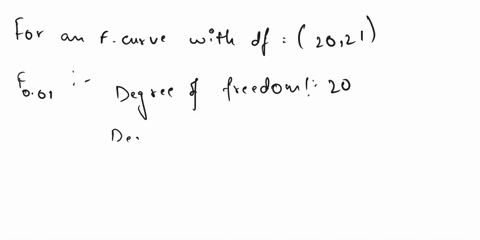 For an F-curve with df : (20,21)
F0.01 :- Degree of freedom1: 20
De.